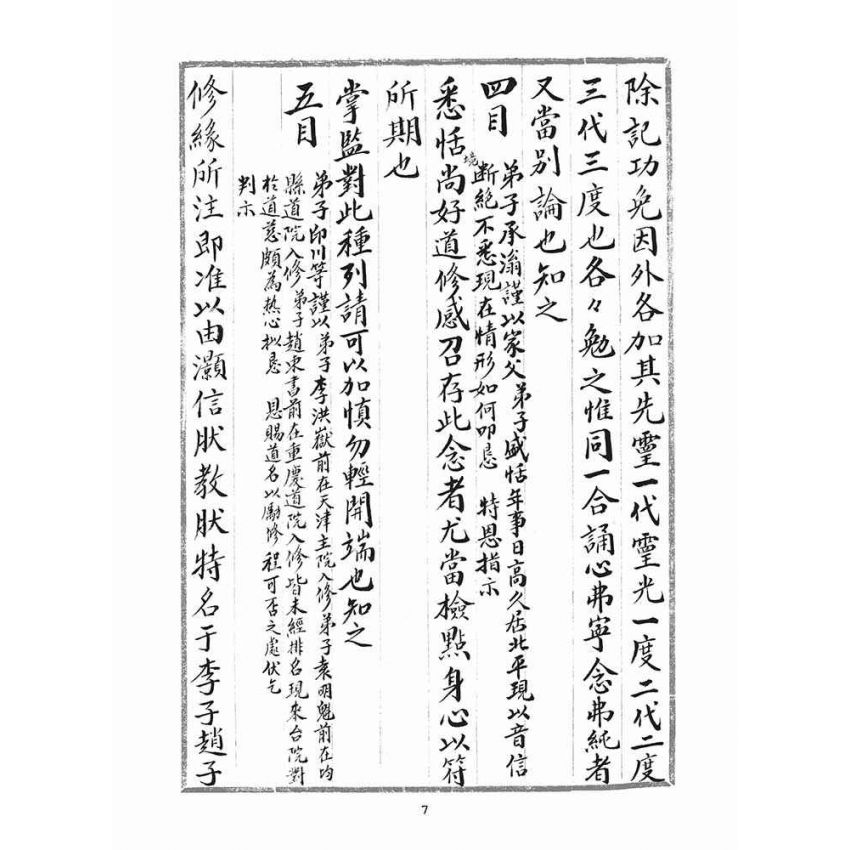 除記功免因外各加其先靈一代靈光一度二代二度
三代三度也各々勉之惟同一合誦心弗寧念弗純者
又當別論也知之
四目
弟子承滃謹以家父弟子盛恬年事日高久居北平現以音信
斷絕不悉現在情形如何叩懇 特恩指示
悉恬境尚好道修感召存此念者尤當檢點身心以符
所期也
掌監對此種列請可以加慎勿輕開端也知之
五目
弟子印川等謹以弟子李洪嶽前在天津主院入修弟子袁明魁前在均
縣道院入修弟子趙東書前在重慶道院入修皆未經排名現來台院對
於道慈頗為熱心擬懇 恩賜道名以勵修程可否之處伏乞
判示
修緣所注即准以由灝信肰教肰特名于李子趙子
7